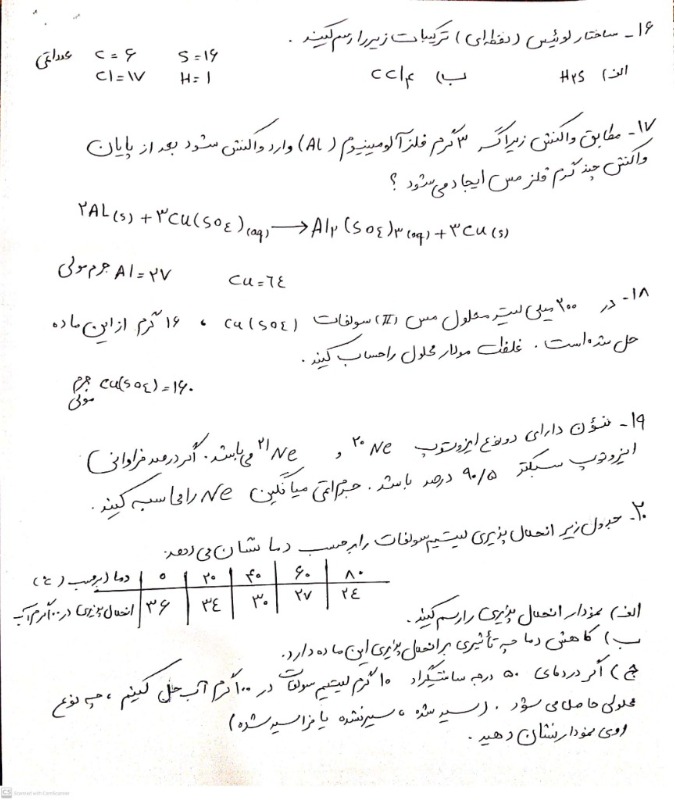 ۱۶- ساختار لوئیس (نقطه‌ای) ترکیبات زیر را رسم کنید.
الف) H۲S ب) CCl۴ C=۶ S=۱۶ عدد اتمی
Cl=۱۷ H=۱
۱۷- مطابق واکنش زیر اگر ۳ گرم فلز آلومینیوم (AL) وارد واکنش شود بعد از پایان
واکنش چند گرم فلز مس ایجاد می‌شود؟
۲AL(s) + ۳Cu(SO٤)(aq) → Al۲(SO٤)۳(aq) + ۳Cu(s)
جرم مولی Al=۲۷ Cu=٦٤
۱۸- در ۲۰۰ میلی لیتر محلول مس (II) سولفات Cu(SO٤) ، ۱۶ گرم از این ماده
حل شده است. غلظت مولار محلول را حساب کنید.
جرم مولی Cu(SO٤)=۱۶۰
۱۹- نئون دارای دو نوع ایزوتوپ ²⁰Ne و ²¹Ne می‌باشد. اگر درصد فراوانی
ایزوتوپ سبکتر ۹۰/۵ درصد باشد. جرم اتمی میانگین Ne را محاسبه کنید.
۲۰- جدول زیر انحلال پذیری لیتیم سولفات را برحسب دما نشان می‌دهد.
دما (برحسب °C) ۰ ۲۰ ۴۰ ۶۰ ۸۰
انحلال پذیری در ۱۰۰گرم آب ۳۶ ۳٤ ۳۰ ۲۷ ۲٤
الف) نمودار انحلال پذیری را رسم کنید.
ب) کاهش دما چه تأثیری بر انحلال پذیری این ماده دارد.
ج) اگر در دمای ۵۰ درجه سانتیگراد ۱۵ گرم لیتیم سولفات در ۱۰۰ گرم آب حل کنیم، چه نوع
محلولی حاصل می‌شود. (سیر شده، سیرنشده یا فراسیر شده)
روی نمودار نشان دهید.
CS Scanned with CamScanner